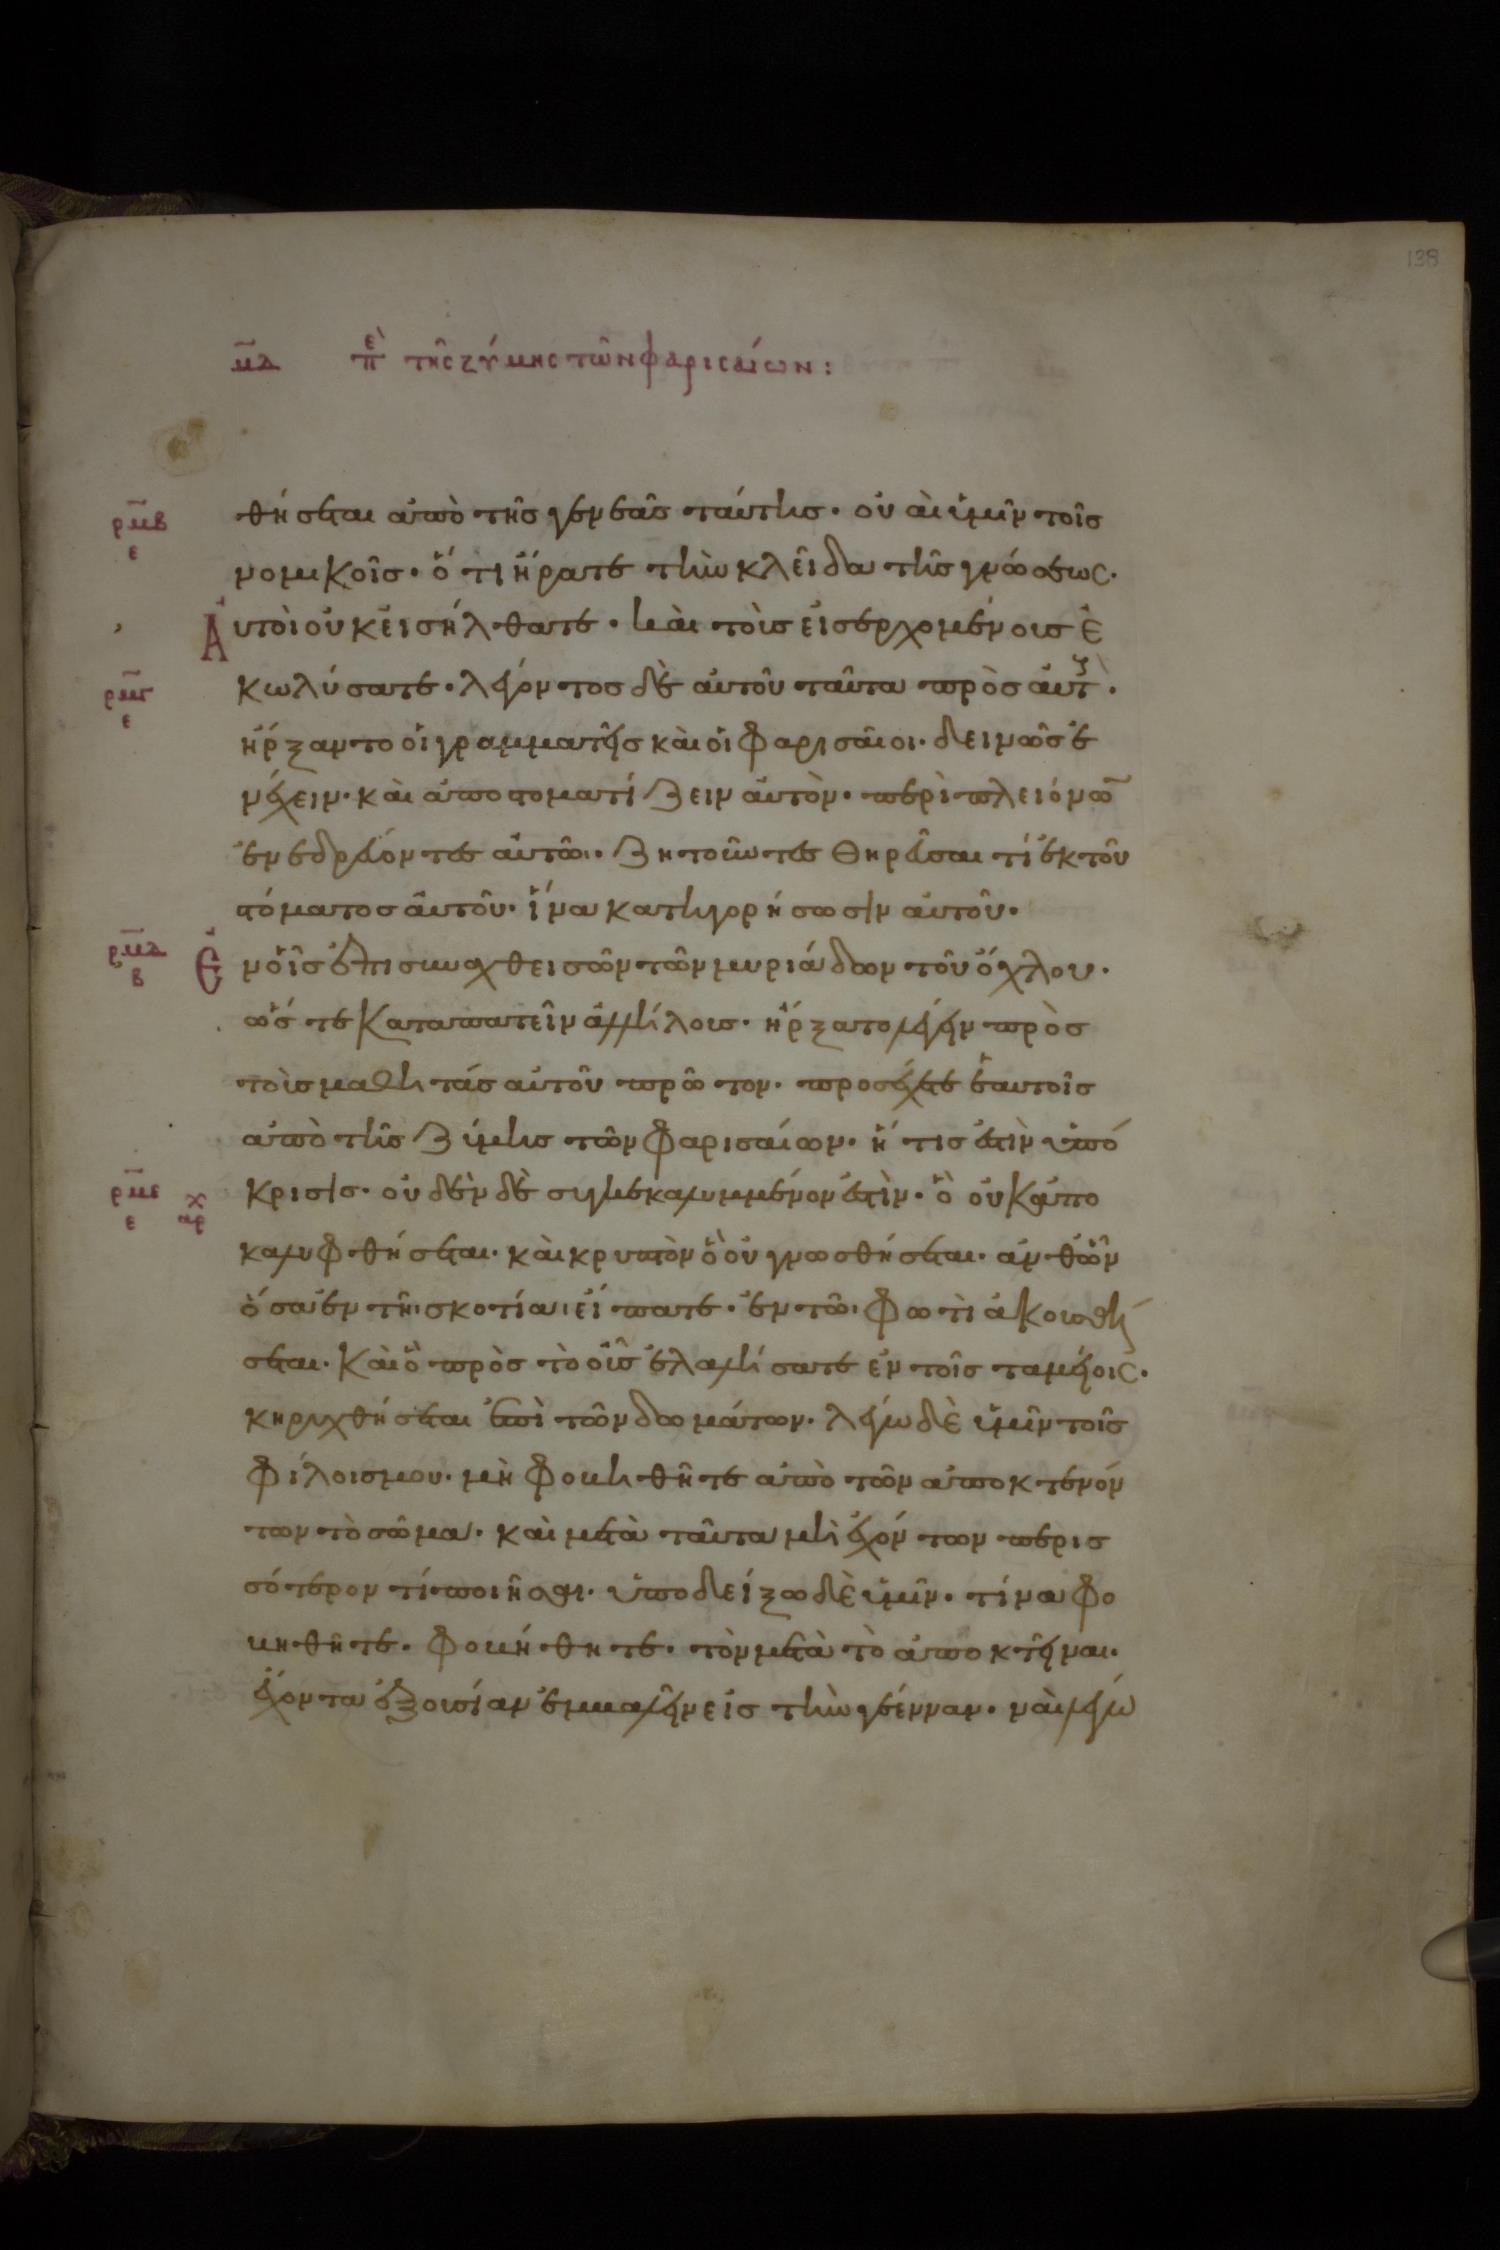 138
μδ πὲ τῆς ζύμης τῶν φαρισαίων:
ρμβ
ε
θήσεται ἀπὸ τῆς γενεᾶς ταύτης· οὐαὶ ὑμῖν τοῖς
νομικοῖς· ὅτι ἤρατε τὴν κλεῖδα τῆς γνώσεως·
Αὐτοὶ οὐκ εἰσήλθατε· καὶ τοὺς εἰσερχομένους ἐ
ρμγ
ε
κωλύσατε· λέγοντος δὲ αὐτοῦ ταῦτα πρὸς αὐτ·
ἤρξαντο οἱ γραμματεῖς καὶ οἱ φαρισαῖοι· δεινῶς ἐ
νέχειν· καὶ ἀποστοματίζειν αὐτὸν· περὶ πλειόνω
ἐνεδρεύοντες αὐτῶι· ζητοῦντες θηρεῦσαι τί ἐκ τοῦ
στόματος αὐτοῦ· ἵνα κατηγορήσωσιν αὐτοῦ·
ρμδ
β
Ἐν οἷς ἐπισυναχθεισῶν τῶν μυριάδων τοῦ ὄχλου·
ὥστε καταπατεῖν ἀλλήλους· ἤρξατο λέγειν πρὸς
τοὺς μαθητάς αὐτοῦ πρῶτον· προσέχετε ἑαυτοῖς
ἀπὸ τῆς ζύμης τῶν φαρισαίων· ἥτις ἐστὶν ὑπό
ρμε
ε
χ
αρ
κρισις· οὐδὲν δὲ συγκεκαλυμμένον ἐστὶν· ὃ οὐκ ἀπο
καλυφθήσεται· καὶ κρυπτὸν ὃ οὐ γνωσθήσεται· ἀνθ ὧν
ὅσα ἐν τῆι σκοτίαι εἴπατε· ἐν τῶι φωτὶ ἀκουσθή
σεται· καὶ ὃ πρὸς τὸ οὖς ἐλαλήσατε ἐν τοῖς ταμείοις·
κηρυχθήσεται ἐπὶ τῶν δωμάτων· λέγω δὲ ὑμῖν τοῖς
φίλοις μου· μὴ φοβηθῆτε ἀπὸ τῶν ἀποκτενόν
των τὸ σῶμα· καὶ μετὰ ταῦτα μὴ ἐχόντων περισ
σότερον τί ποιῆσαι· ὑποδείξω δὲ ὑμῖν· τίνα φο
βηθῆτε· φοβήθητε· τὸν μετὰ τὸ ἀποκτεῖναι·
ἔχοντα ἐξουσίαν ἐμβαλεῖν εἰς τὴν γέενναν· ναὶ λέγω